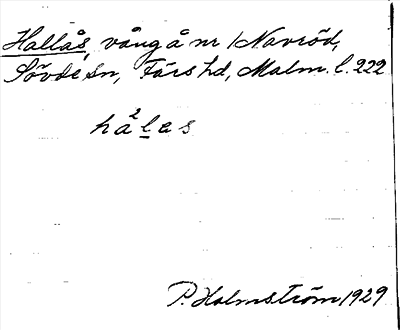 Hallås, vång å nr 1 Navröd,
Sövde sn, Färs hd, Malm. l. 222
hå²les
P. Holmström 1929